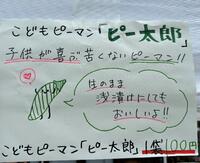 こどもピーマン「ピー太郎」
子供が喜ぶ苦くないピーマン!!
生のまま
浅漬けにしても
おいしいよ!!
こどもピーマン「ピー太郎」1袋100円